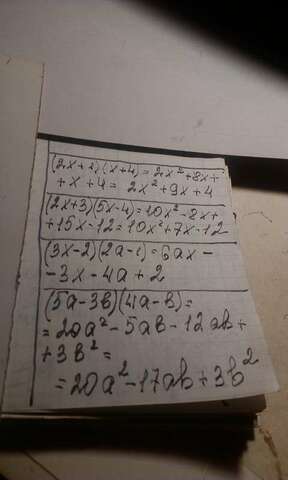 (2x+1)(x+4)=2x²+8x+
+x+4=2x²+9x+4
(2x+3)(5x-4)=10x²-8x+
+15x-12=10x²+7x-12
(3x-2)(2a-1)=6ax-
-3x-4a+2
(5a-3b)(4a-b)=
=20a²-5ab-12ab+
+3b²=
=20a²-17ab+3b²